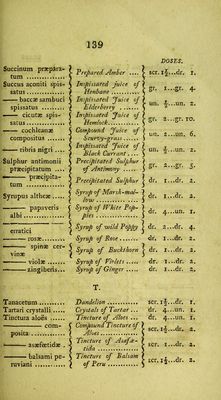 139
DOSES.
Succinum præpara-
tum ............ Prepared Amber .... scr. 1½...dr. 1.
Succus aconiti spis-
satus ............ Inspissated Juice of
Henbane .......... gr. 1...gr. 4.
—— baccæ sambuci
spissatus ........ Inspissated Juice of
Elderberry ....... un. ½...un. 2.
—— cicutæ spis-
satus ............ Inspissated Juice of
Hemlock .......... gr. 2...gr. 10.
—— cochleariæ
compositus ....... Compound Juice of
Scurvy-grass ..... un. 2...un. 6.
—— ribris nigri ... Inspissated Juice of
Black Currant .... un. ½...un. 2.
Sulphur antimonii
præcipitatum .... Precipitated Sulphur
of Antimony ...... gr. 2...gr. 5.
—— præcipita-
tum ............. Precipitated Sulphur dr. 1...dr. 2.
Syrupus altheæ .... Syrup of Marsh-mal-
low .............. dr. 1...dr. 2.
—— papaveris
albi ............. Syrup of White Pop-
pies ............. dr. 4...un. 1.
erratici .......... Syrup of wild Poppy dr. 2...dr. 4.
—— rosæ ......... Syrup of Rose ...... dr. 1...dr. 2.
—— spinæ cer-
vinæ ............. Syrup of Buckthorn dr. 1...dr. 2.
—— violæ ........ Syrup of Violets .... dr. 1...dr. 2.
—— zingiberis ... Syrup of Ginger .... dr. 1...dr. 2.
T.
Tanacetum ......... Dandelion .......... scr. 1½...dr. 1.
Tartari crystalli .... Crystals of Tartar ... dr. 4...un. 1.
Tinctura aloës ..... Tincture of Aloes ... dr. 4...un. 1.
—— com-
posita ........... Compound Tincture of
Aloes ............ scr. 1½...dr. 2.
—— asæfœtidæ . Tincture of Asafæ-
tida ............. scr. 1...dr. 2.
—— balsami pe-
ruviani .......... Tincture of Balsam
of Peru .......... scr. 1½...dr. 2.